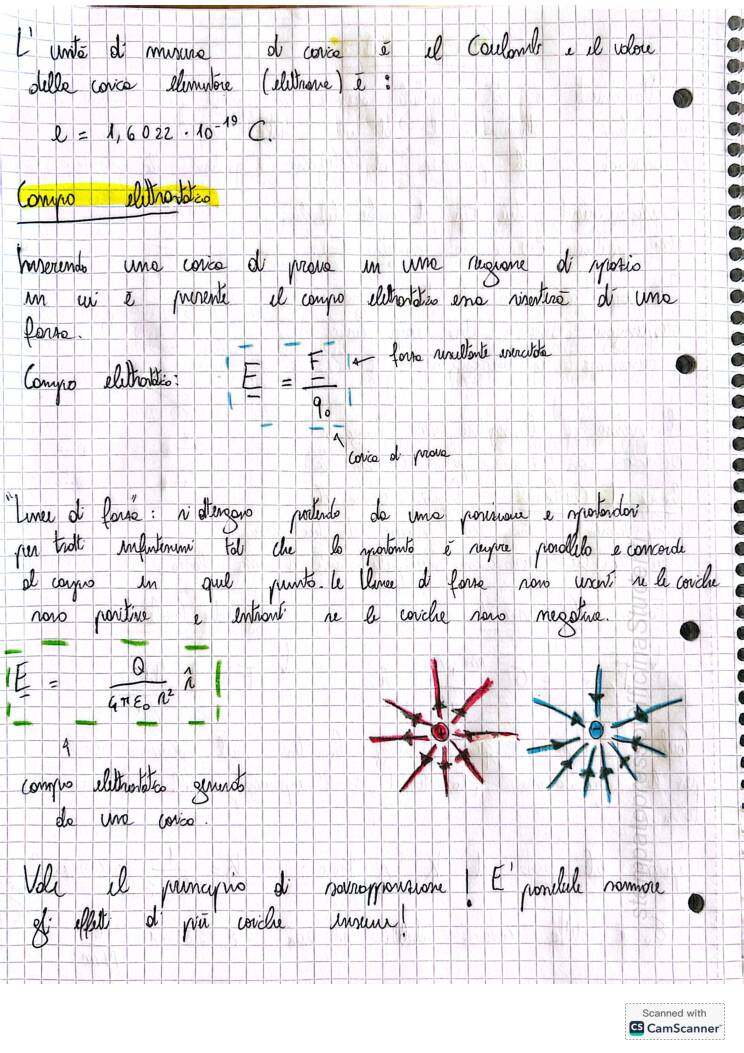 L' unità di misura di carica è il Coulomb e il valore
della carica elementare (elettrone) è :
e = 1,6022 · 10⁻¹⁹ C.
Campo elettrostatico
Inserendo una carica di prova in una regione di spazio
in cui è presente il campo elettrostatico essa risentirà di una
forza.
Campo elettrostatico: E = F / q₀ ← forza risultante esercitata
carica di prova
"Linee di forza": si ottengono partendo da una posizione e spostandosi
per tratti infinitesimi tali che lo spostamento è sempre parallelo e concorde
al campo in quel punto. Le linee di forza sono uscenti se le cariche
sono positive e entranti se le cariche sono negative.
E = Q / 4πε₀ r² r̂
+ -
campo elettrostatico generato
da una carica.
Vale il principio di sovrapposizione! E' possibile sommare
gli effetti di più cariche insieme!
Scanned with
CS CamScanner